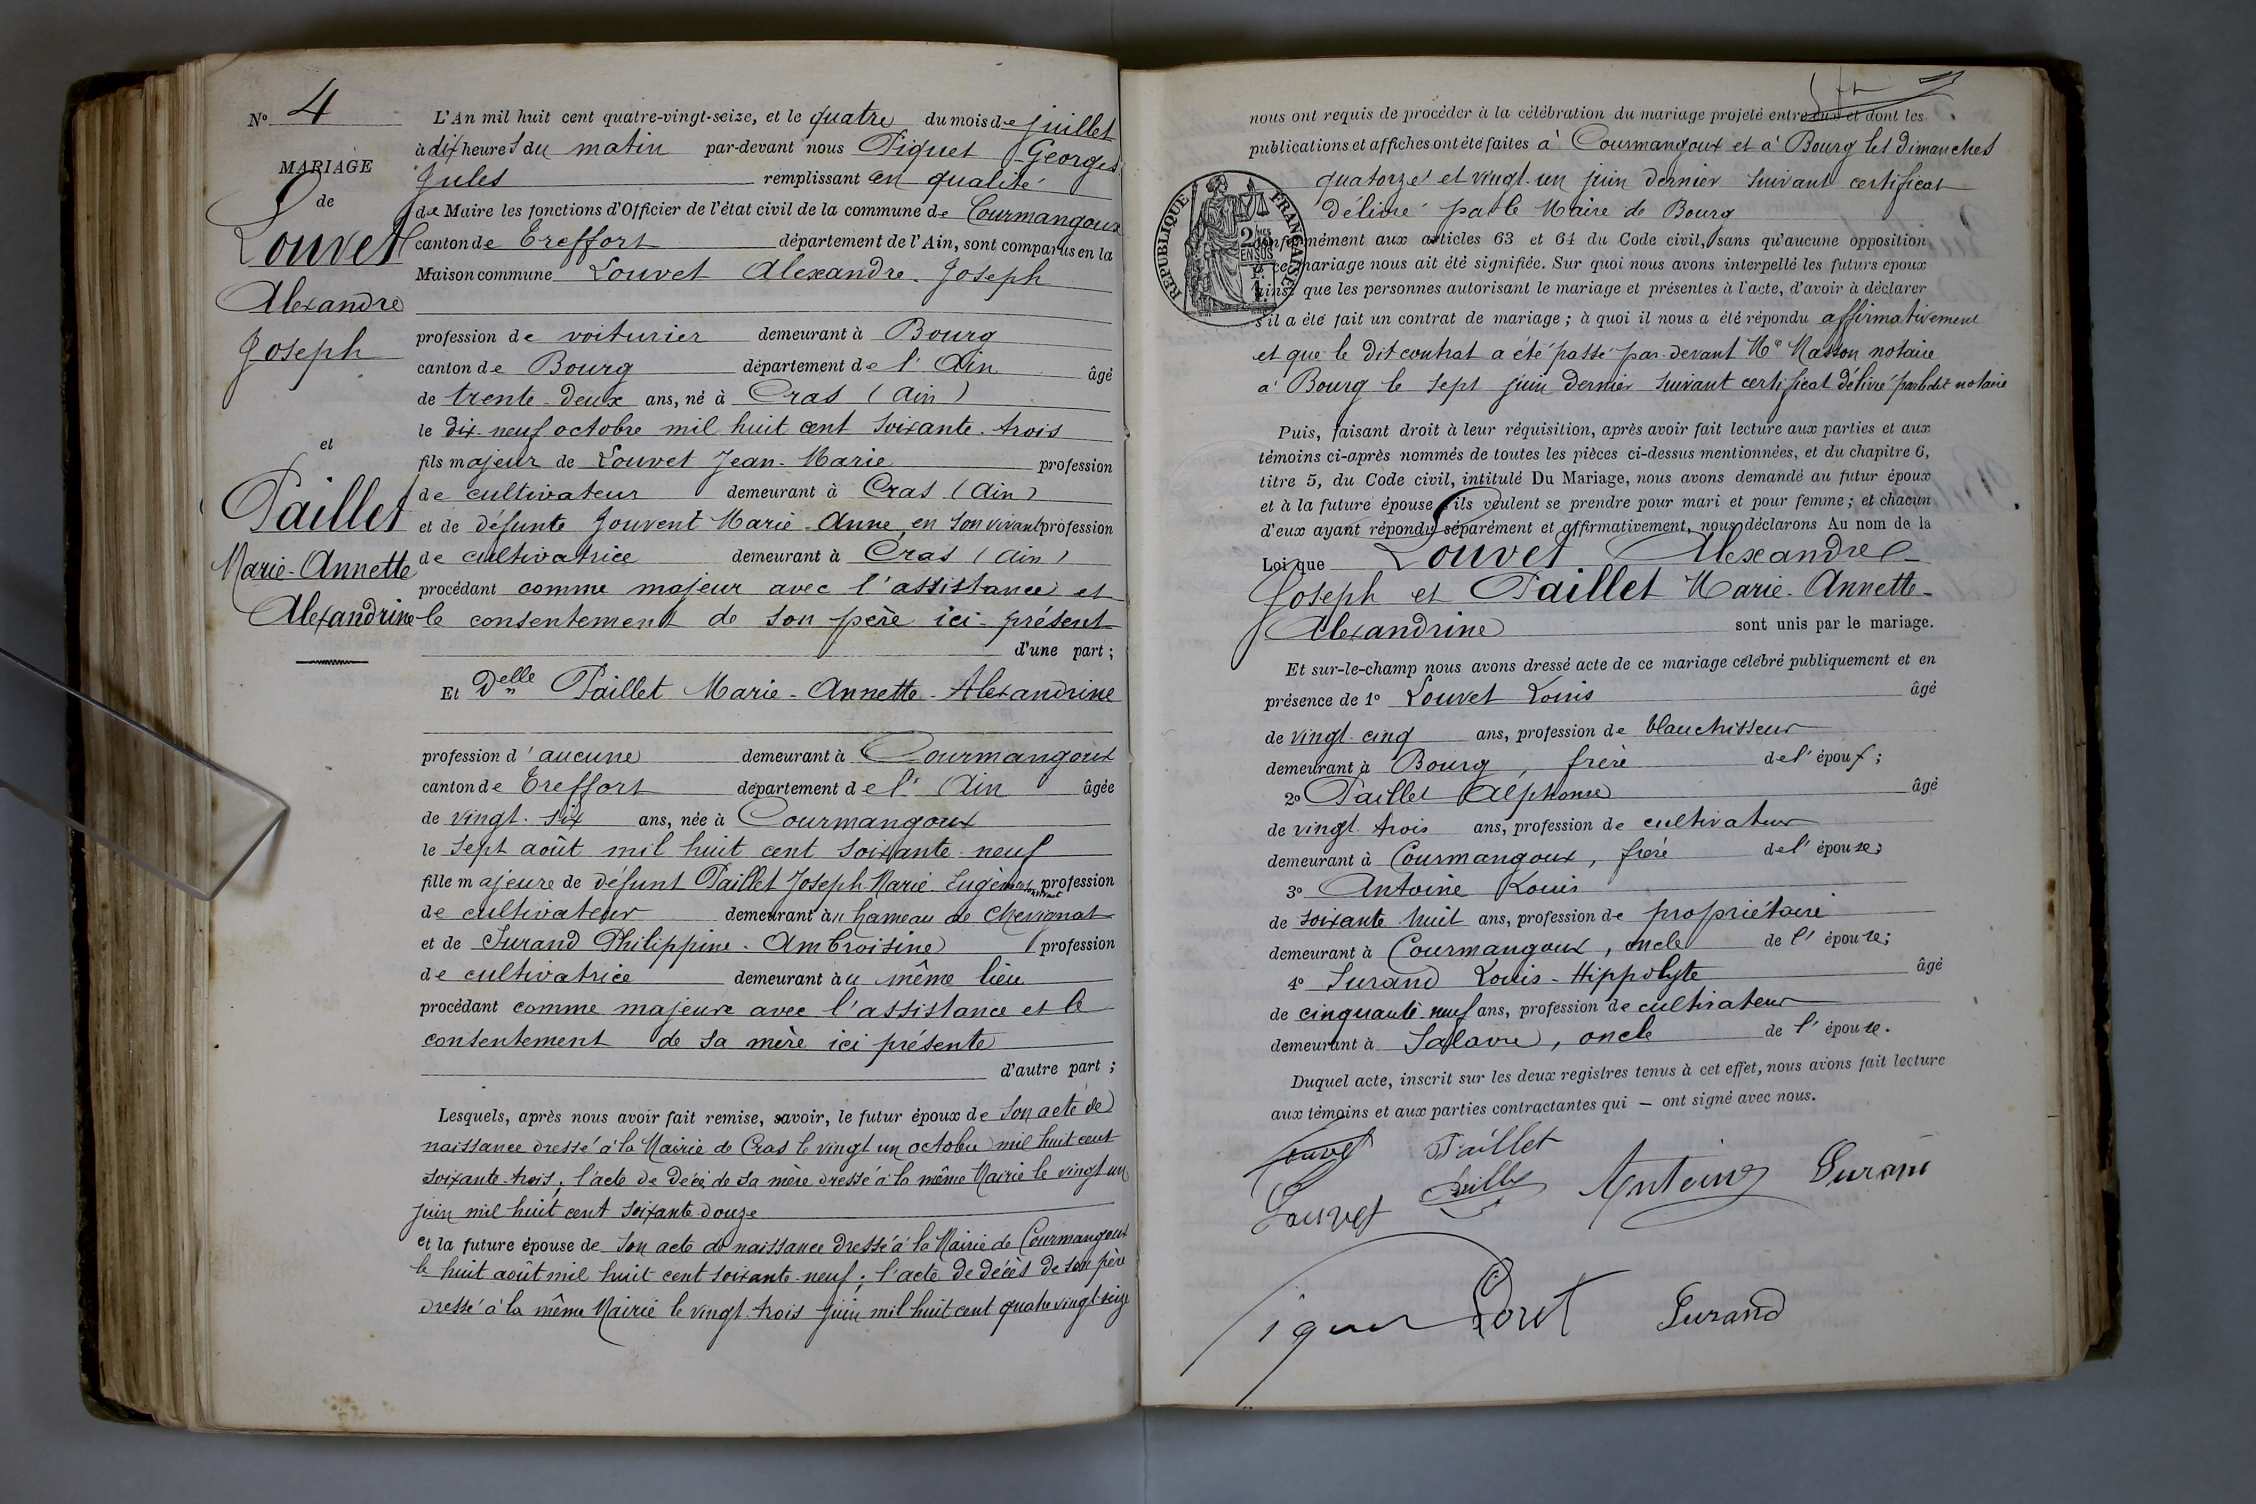 N° 4
MARIAGE
de
Louvet
Alexandre
Joseph
et
Paillet
Marie-Annette
Alexandrine
L'An mil huit cent quatre-vingt-seize, et le quatre du mois de juillet
à dix heures du matin par-devant nous Piquet Georges
Jules remplissant en qualité
de Maire les fonctions d'Officier de l'état civil de la commune de Courmangoux
canton de Treffort département de l'Ain, sont comparus en la
Maison commune Louvet Alexandre Joseph
profession de voiturier demeurant à Bourg
canton de Bourg département de l'Ain âgé
de trente-deux ans, né à Cras (Ain)
le dix-neuf octobre mil huit cent soixante-trois
fils majeur de Louvet Jean-Marie profession
de cultivateur demeurant à Cras (Ain)
et de défunte Jouvent Marie-Anne, en son vivant profession
de cultivatrice demeurant à Cras (Ain)
procédant comme majeur avec l'assistance et
le consentement de son père ici présent
d'une part ;
Et Delle Paillet Marie-Annette-Alexandrine
profession d'aucune demeurant à Courmangoux
canton de Treffort département de l'Ain âgée
de vingt-six ans, née à Courmangoux
le sept août mil huit cent soixante-neuf
fille majeure de défunt Paillet Joseph Marie Eugène profession
de cultivateur demeurant au hameau de Chevignat
et de Surand Philippine-Ambroisine profession
de cultivatrice demeurant au même lieu
procédant comme majeure avec l'assistance et le
consentement de sa mère ici présente
d'autre part ;
Lesquels, après nous avoir fait remise, savoir, le futur époux de son acte de
naissance dressé à la Mairie de Cras le vingt un octobre mil huit cent
soixante-trois ; l'acte de décè de sa mère dressé à la même Mairie le vingt un
juin mil huit cent soixante-douze
et la future épouse de son acte de naissance dressé à la Mairie de Courmangoux
le huit août mil huit cent soixante-neuf ; l'acte de décès de son père
dressé à la même Mairie le vingt-trois juin mil huit cent quatre vingt-seize
nous ont requis de procéder à la célébration du mariage projeté entre eux et dont les
publications et affiches ont été faites à Courmangoux et à Bourg les dimanches
quatorze et vingt-un juin dernier suivant certificat
délivré par le Maire de Bourg
RÉPUBLIQUE FRANÇAISE
2 MES EN SUS
conformément aux articles 63 et 64 du Code civil, sans qu'aucune opposition
à ce mariage nous ait été signifiée. Sur quoi nous avons interpellé les futurs époux
ainsi que les personnes autorisant le mariage et présentes à l'acte, d'avoir à déclarer
s'il a été fait un contrat de mariage ; à quoi il nous a été répondu affirmativement
et que le dit contrat a été passé par-devant Me Masson notaire
à Bourg le sept juin dernier suivant certificat délivré par ledit notaire
Puis, faisant droit à leur réquisition, après avoir fait lecture aux parties et aux
témoins ci-après nommés de toutes les pièces ci-dessus mentionnées, et du chapitre 6,
titre 5, du Code civil, intitulé Du Mariage, nous avons demandé au futur époux
et à la future épouse s'ils veulent se prendre pour mari et pour femme ; et chacun
d'eux ayant répondu séparément et affirmativement, nous déclarons Au nom de la
Loi que Louvet Alexandre
Joseph et Paillet Marie-Annette-
Alexandrine sont unis par le mariage.
Et sur-le-champ nous avons dressé acte de ce mariage célébré publiquement et en
présence de 1° Louvet Louis âgé
de vingt-cinq ans, profession de blanchisseur
demeurant à Bourg, frère de l'époux ;
2° Paillet Alphonse âgé
de vingt-trois ans, profession de cultivateur
demeurant à Courmangoux, frère de l'épouse ;
3° Antoine Louis
de soixante-huit ans, profession de propriétaire
demeurant à Courmangoux, oncle de l'épouse ;
4° Surand Louis-Hippolyte âgé
de cinquante-neuf ans, profession de cultivateur
demeurant à Salavre, oncle de l'épouse.
Duquel acte, inscrit sur les deux registres tenus à cet effet, nous avons fait lecture
aux témoins et aux parties contractantes qui — ont signé avec nous.
Louvet Paillet
Louvet Paillet Antoine Surand
Piquet Surand